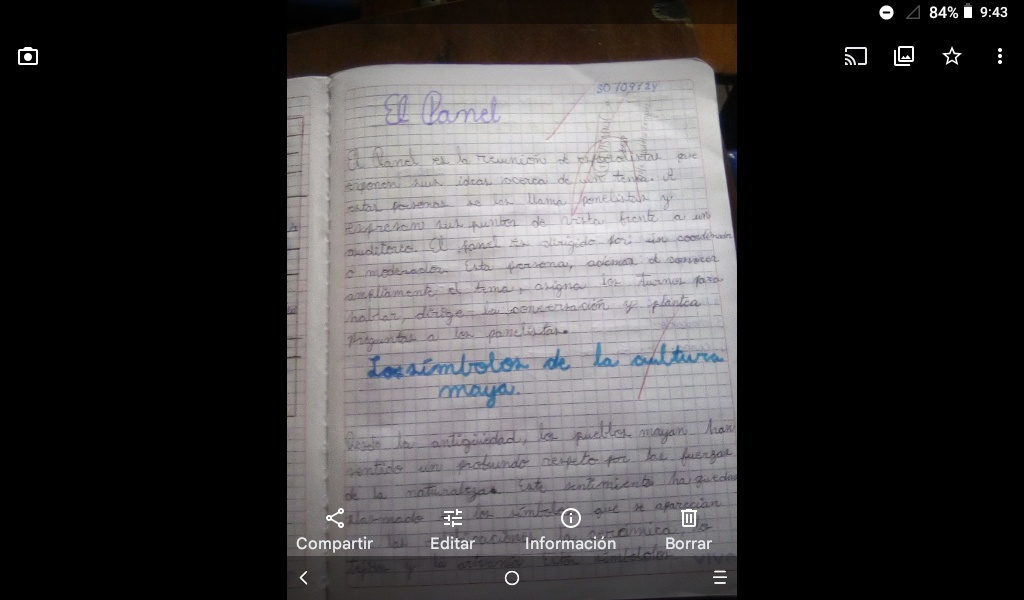 84% 9:43
El Panel
El Panel es la reunión de especialistas que
exponen sus ideas acerca de un tema. A
estas personas se les llama panelistas y
expresan sus puntos de vista frente a un
auditorio. El panel es dirigido por: un coordinador
o moderador. Esta persona, además de conocer
ampliamente el tema, asigna los turnos para
hablar, dirige la conversación y plantea
preguntas a los panelistas.
Los símbolos de la cultura
maya.
Desde la antigüedad, los pueblos mayas han
sentido un profundo respeto por las fuerzas
de la naturaleza. Este sentimiento ha quedado
plasmado los símbolos que se aparecían
las cerámica, los
y la
Compartir Editar Información Borrar
VIVO